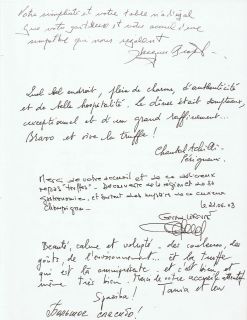 Votre simplicité et votre table n'a d'égal
que votre gentillesse et votre accueil d'une
sympathie qui nous
Jacques
Quel bel endroit, plein de charme, d'authenticité
et de belle hospitalité. Le dîner était somptueux,
exceptionnel et d'un grand raffinement...
Bravo et vive la truffe !
Chantal
Périgueux
Merci de votre accueil et de ce délicieux
repas "truffes". Découverte de la région et de sa
gastronomie, et surtout des de ce curieux
champignon.
le 21.06.03
Beauté, calme et volupté, des couleurs, des
goûts, de l'environnement... et la truffe
qui est là omniprésente et c'est bien et
même très bien. Merci de votre accueil attentif
Spasiba! Tania et
Большое спасибо!